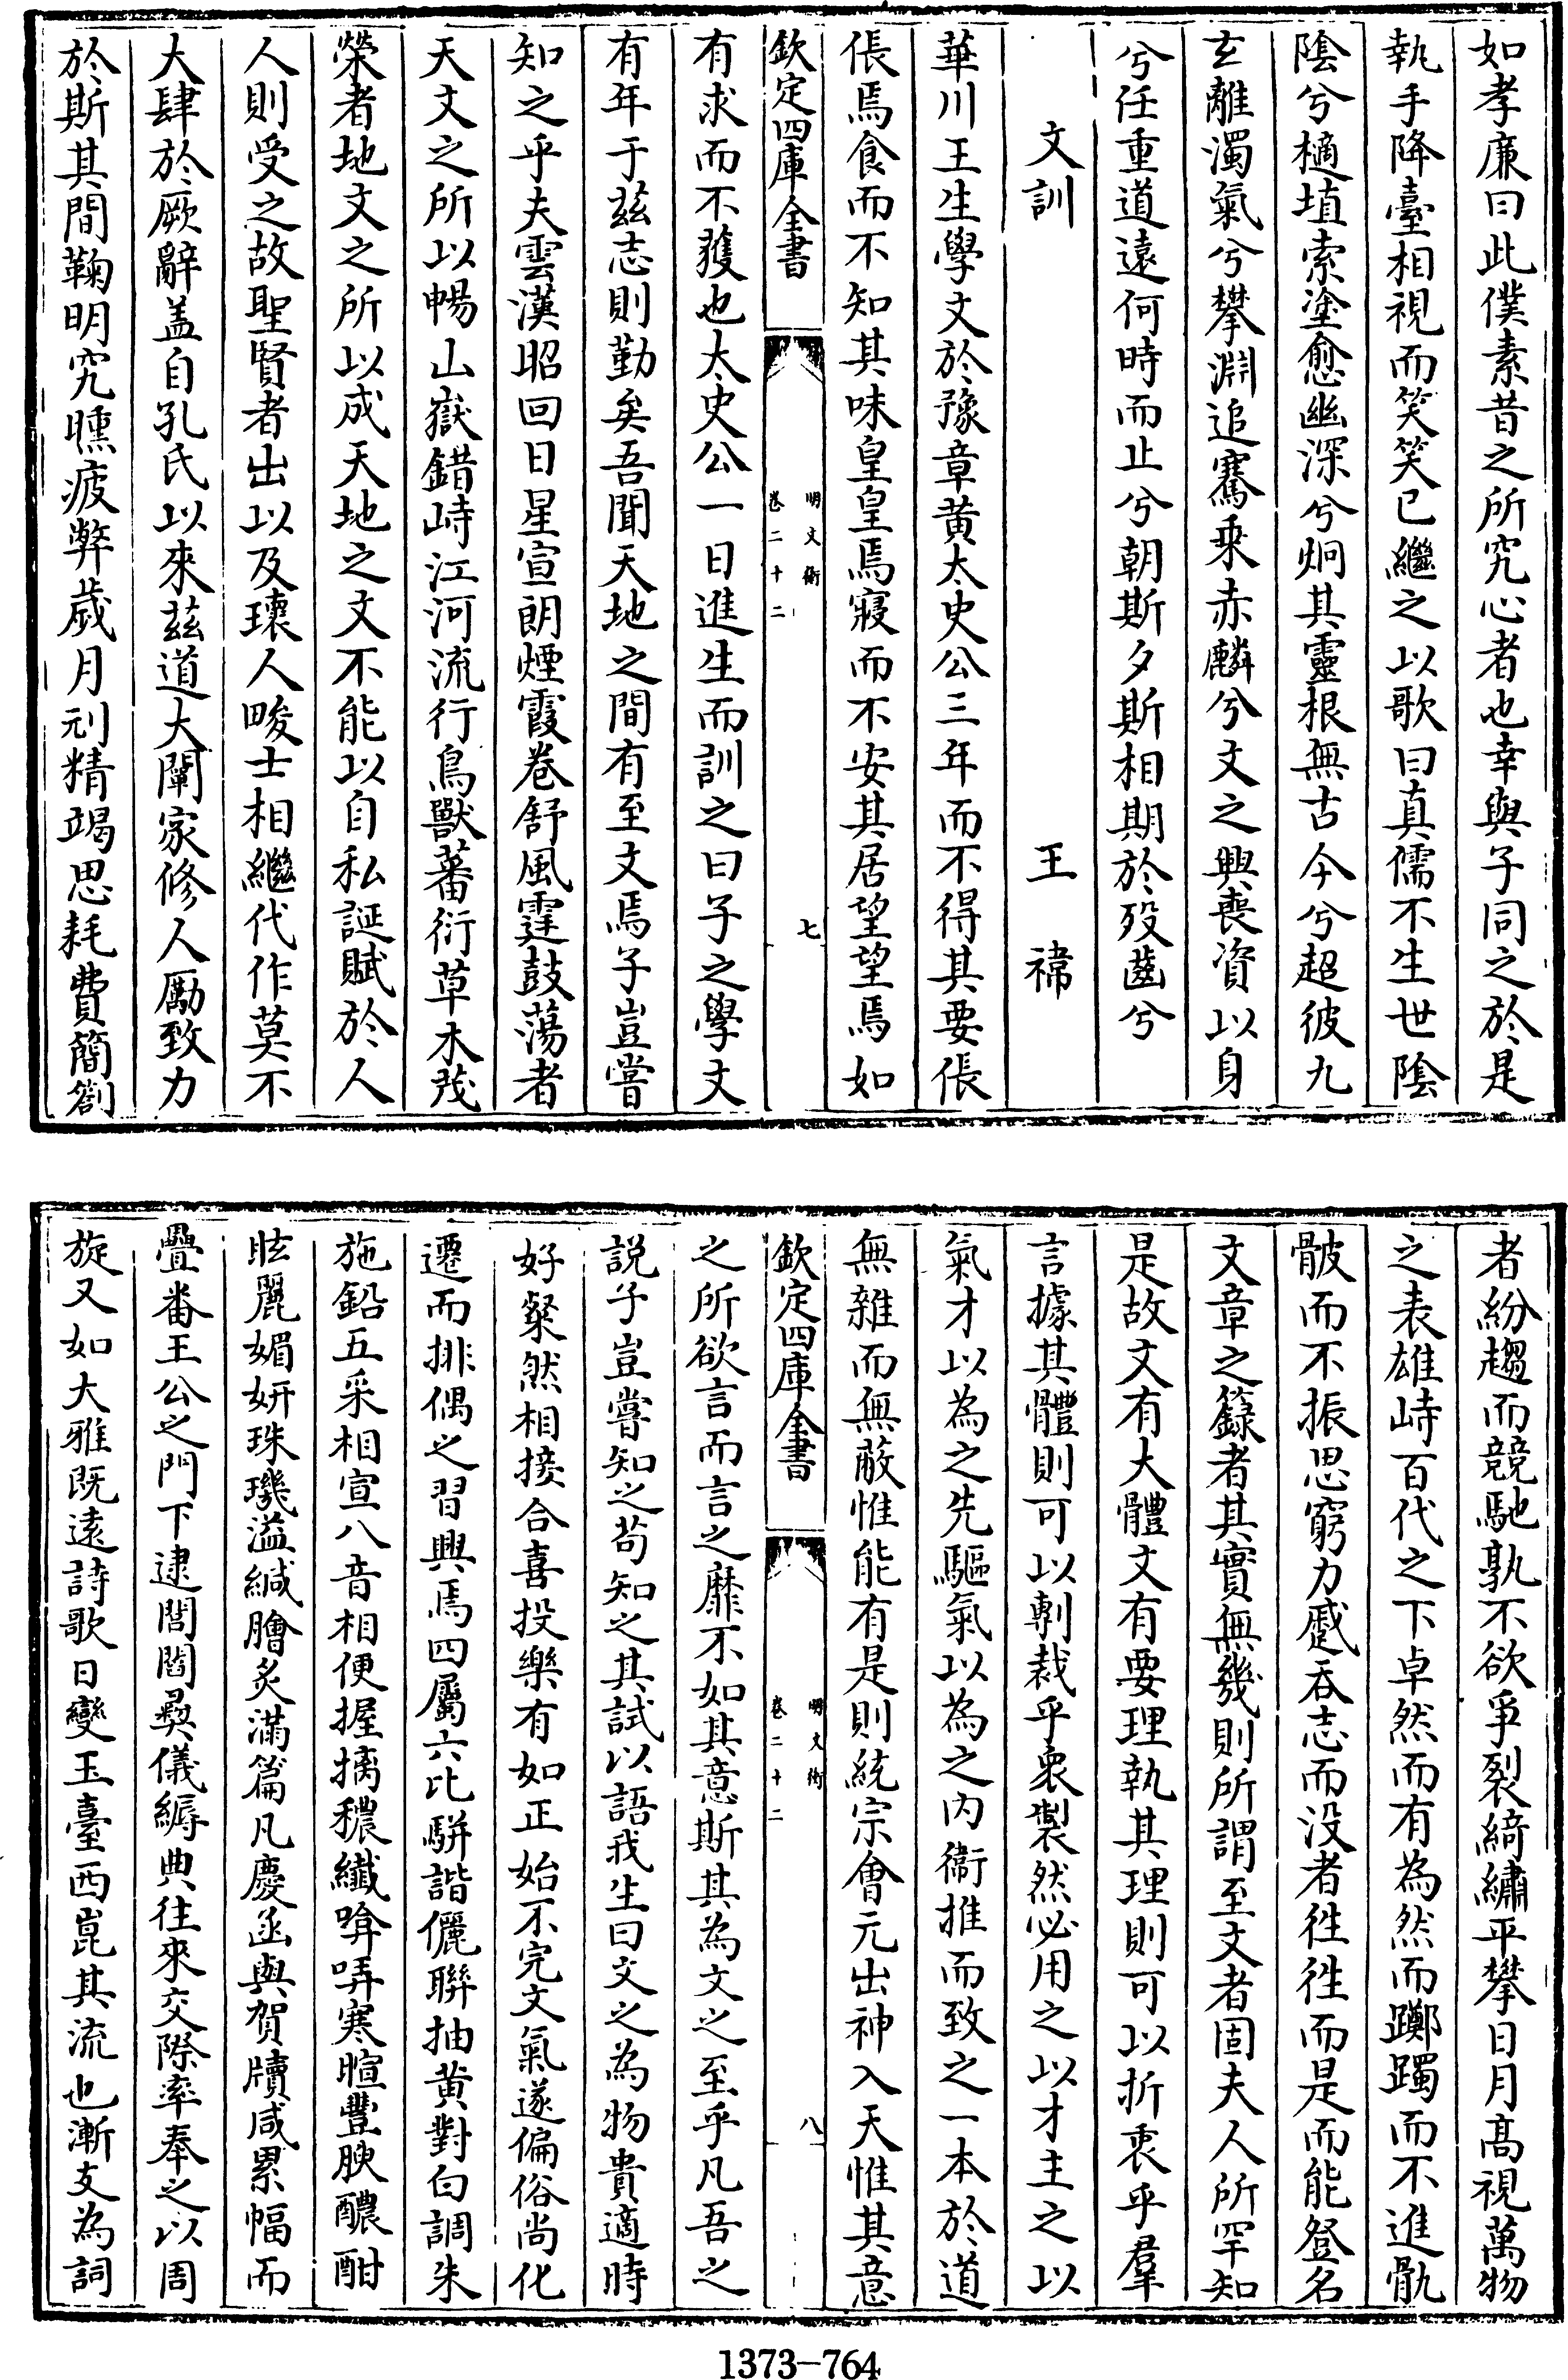 如孝廉曰此僕素昔之所究心者也幸與子同之於是
執手降臺相視而笑笑已繼之以歌曰真儒不生世陰
陰兮擿埴索塗愈幽深兮炯其靈根無古今兮超彼九
玄離濁氣兮攀淵追騫乘赤麟兮文之興喪資以身
兮任重道遠何時而止兮朝斯夕斯相期於歿齒兮
文訓　王禕
華川王生學文於豫章黄太史公三年而不得其要倀
倀焉食而不知其味皇皇焉寢而不安其居望望焉如
欽定四庫全書　明文衡　卷二十二　七
有求而不獲也太史公一日進生而訓之曰子之學文
有年于兹志則勤矣吾聞天地之間有至文焉子豈嘗
知之乎夫雲漢昭回日星宣朗煙霞卷舒風霆鼓蕩者
天文之所以暢山嶽錯峙江河流行鳥獸蕃衍草木茂
榮者地文之所以成天地之文不能以自私誕賦於人
人則受之故聖賢者出以及瓌人畯士相繼代作莫不
大肆於厥辭盖自孔氏以來兹道大闡家修人勵致力
於斯其間鞠明究曛疲弊歲月刓精竭思耗費簡劄
者紛趨而競馳孰不欲爭裂綺繡平攀日月髙視萬物
之表雄峙百代之下卓然而有為然而躑躅而不進骫
骳而不振思窮力蹙吞志而没者徃徃而是而能登名
文章之籙者其實無幾則所謂至文者固夫人所罕知
是故文有大體文有要理執其理則可以折衷乎羣
言據其體則可以剸裁乎衆製然必用之以才主之以
氣才以為之先驅氣以為之内衞推而致之一本於道
無雜而無蔽惟能有是則統宗會元出神入天惟其意
欽定四庫全書　明文衡　卷二十二　八
之所欲言而言之靡不如其意斯其為文之至乎凡吾之
説子豈嘗知之苟知之其試以語我生曰文之為物貴適時
好粲然相接合喜投樂有如正始不完文氣遂偏俗尚化
遷而排偶之習興焉四屬六比駢諧儷聯抽黄對白調朱
施鉛五采相宣八音相便握摛穠纎唫哢寒暄豐腴醲酣
眩麗媚妍珠璣溢緘膾炙滿篇凡慶函與賀牘咸累幅而
疊番王公之門下逮閭閻彛儀縟典往來交際率奉之以周
旋又如大雅既遠詩歌日變玉臺西崑其流也漸支為詞
1373-764